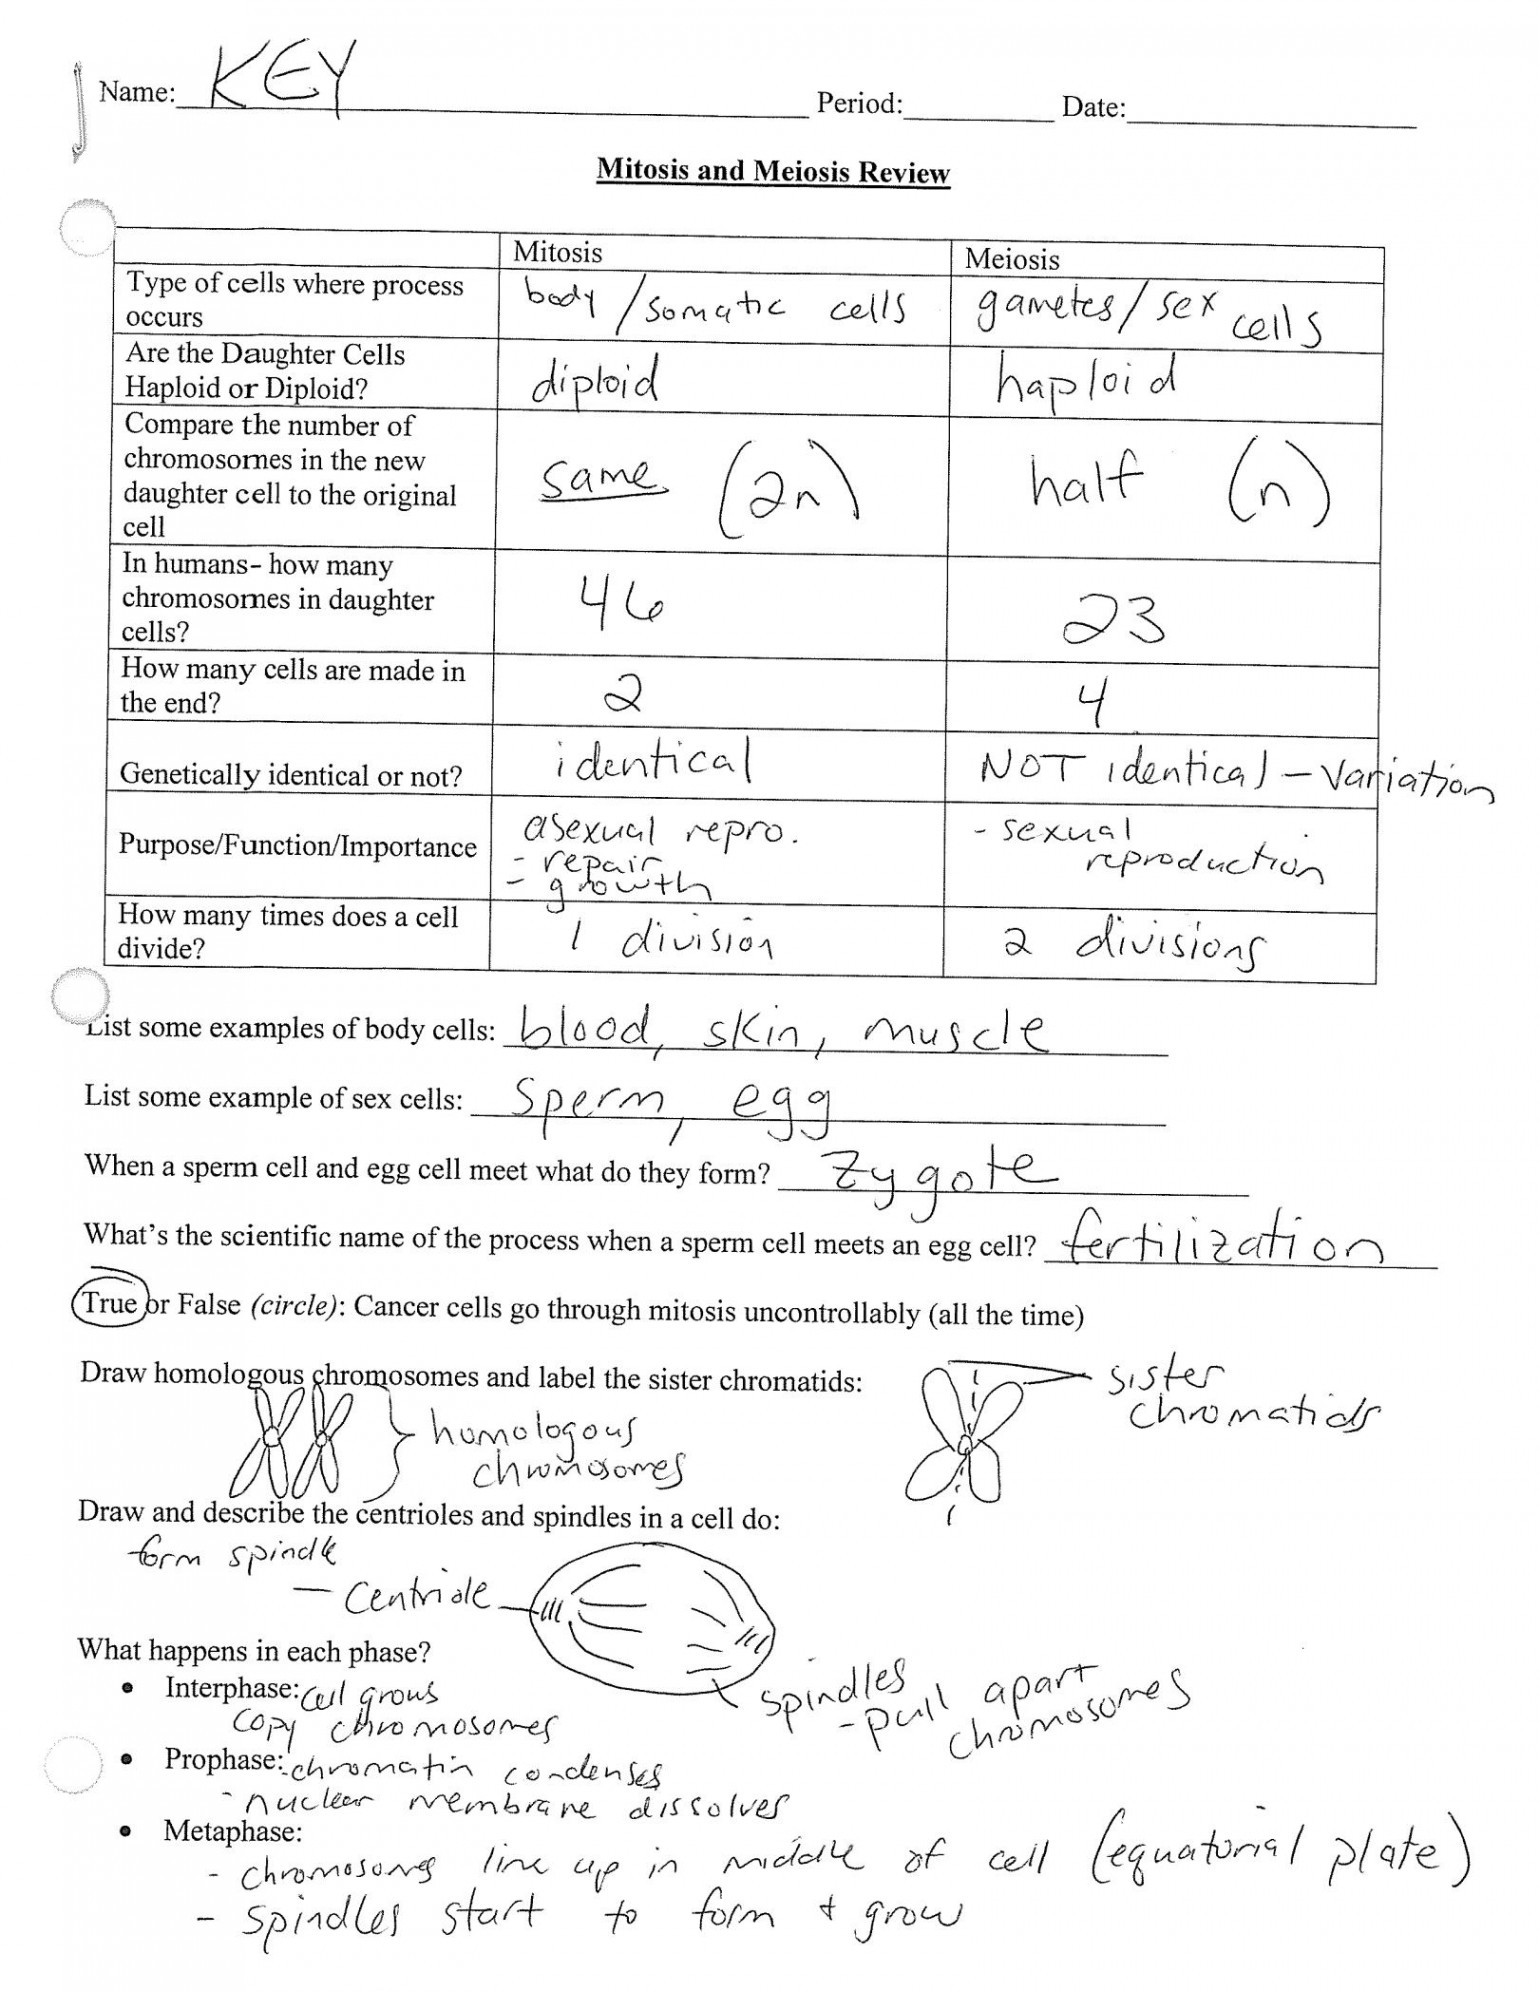 Name: KEY Period: Date:
Mitosis and Meiosis Review
Mitosis Meiosis
Type of cells where process occurs body/somatic cells gametes/sex cells
Are the Daughter Cells Haploid or Diploid? diploid haploid
Compare the number of chromosomes in the new daughter cell to the original cell same (2n) half (n)
In humans- how many chromosomes in daughter cells? 46 23
How many cells are made in the end? 2 4
Genetically identical or not? identical NOT identical - variation
Purpose/Function/Importance asexual repro. - repair - growth - sexual reproduction
How many times does a cell divide? 1 division 2 divisions
List some examples of body cells: blood, skin, muscle
List some example of sex cells: sperm, egg
When a sperm cell and egg cell meet what do they form? zygote
What's the scientific name of the process when a sperm cell meets an egg cell? fertilization
True or False (circle): Cancer cells go through mitosis uncontrollably (all the time)
Draw homologous chromosomes and label the sister chromatids:
sister
chromatids
homologous
chromosomes
Draw and describe the centrioles and spindles in a cell do:
form spindle
- Centriole
What happens in each phase?
spindles
- pull apart
chromosomes
• Interphase: cell grows
copy chromosomes
• Prophase: - chromatin condenses
- nuclear membrane dissolves
• Metaphase:
- chromosomes line up in middle of cell (equatorial plate)
- spindles start to form + grow